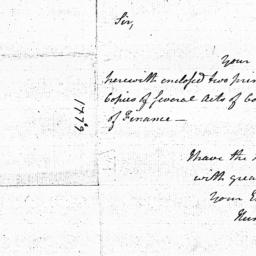 Sir,
Your
herewith enclosed two prin
Copies of several Acts of Co
of Finance —
1779
I have the
with grea
Your E